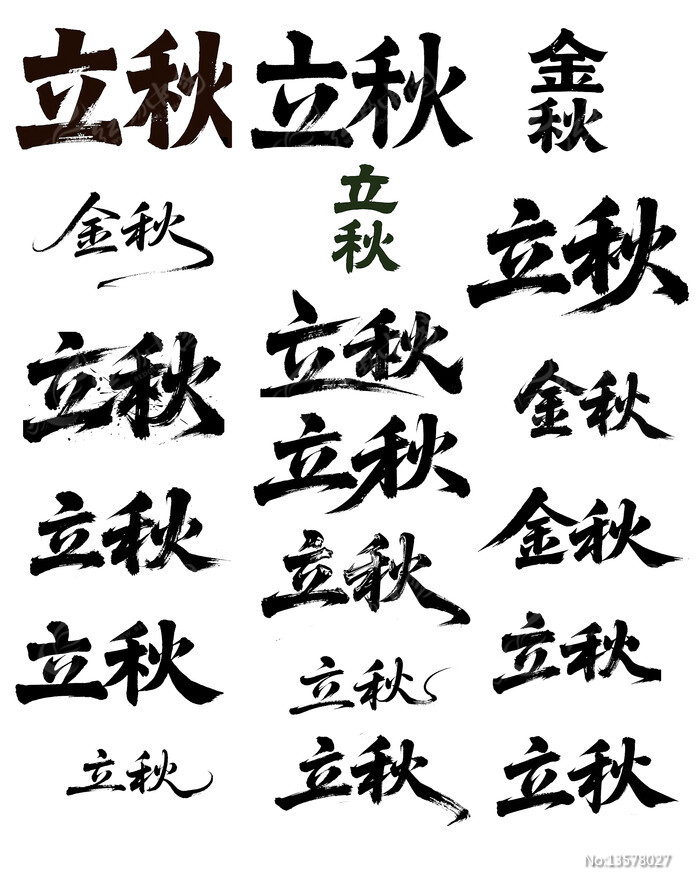 立秋
立秋
金秋
金秋
立秋
立秋
立秋
立秋
金秋
立秋
立秋
金秋
立秋
立秋
立秋
立秋
立秋
立秋
立秋
No:13578027